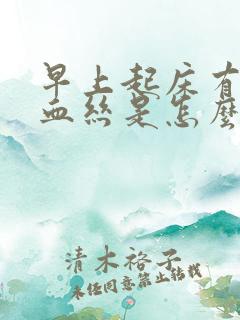 早上起床有
血丝是怎麽
清木裕子
未经同意禁止转载